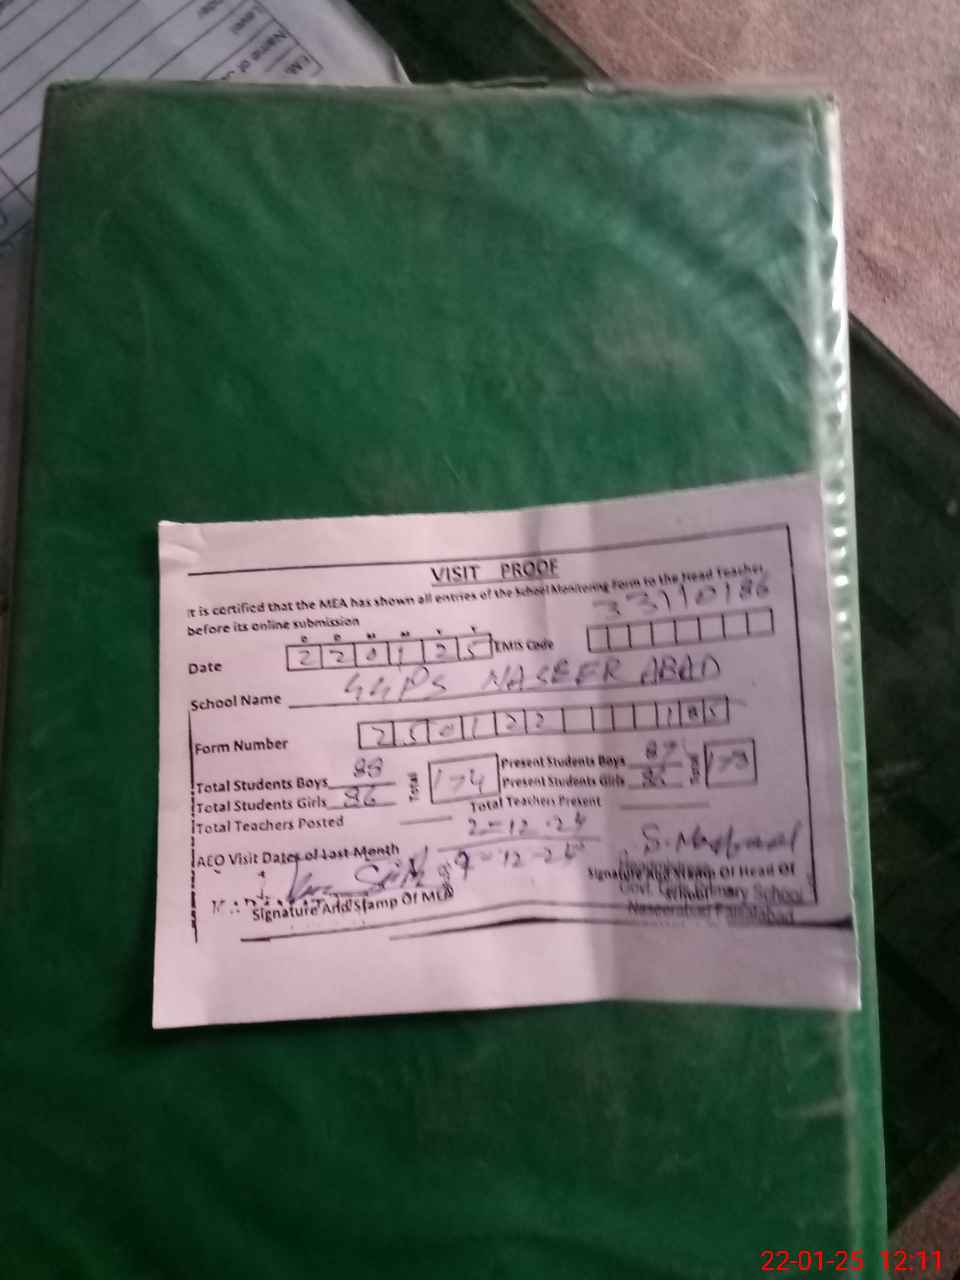 VISIT PROOF
It is certified that the MEA has shown all entries of the School Monitoring Form to the Head Teacher
before its online submission
33110186
D D M M Y Y
Date 2 2 0 1 2 5 EMIS Code
School Name GGPS NASEER ABAD
Form Number 2 5 0 1 2 2 1 8 5
Total Students Boys 88 Total 174 Present Students Boys 87 173
Total Students Girls 86 Present Students Girls 86
Total Teachers Posted Total Teachers Present
AEO Visit Dates of Last Month 2-12-24
9-12-24
Signature And Stamp Of MEA
Headmistress
Signature And Stamp Of Head Of
School
Govt. Primary School
Naseerabad Faisalabad
Name of
Level
22-01-25 12:11